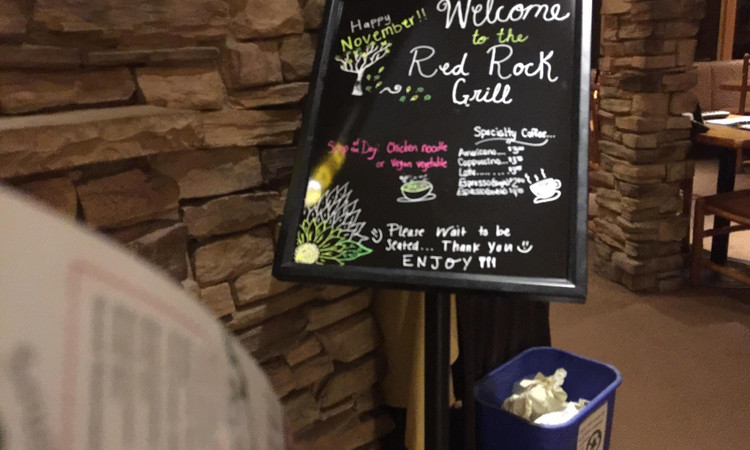 Happy
November!!
Welcome
to the
Red Rock
Grill
Soup of the Day: Chicken noodle
or Vegan vegetable
Specialty Coffee...
Americano...
Cappuccino...
Latte......
Espresso
Espresso
Please Wait to be
Seated... Thank You
ENJOY !!!